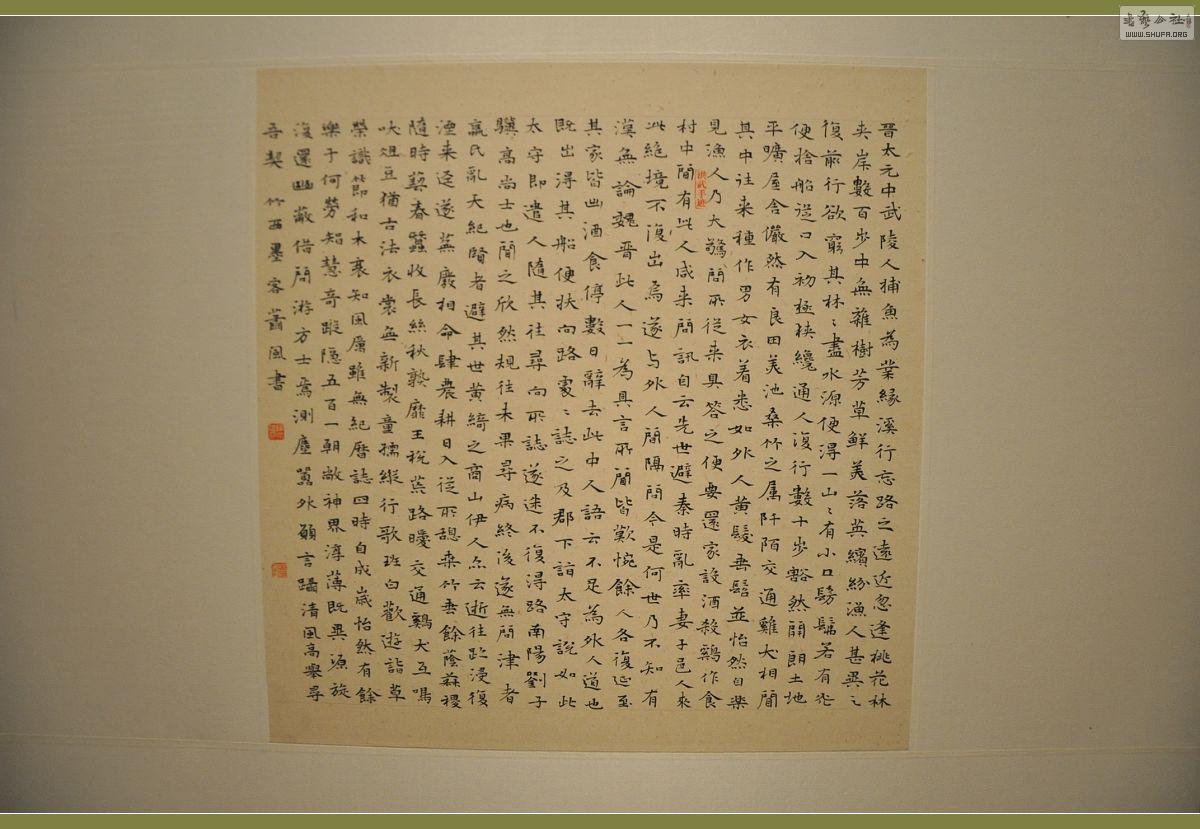 晉太元中武陵人捕魚為業緣溪行忘路之遠近忽逢桃花林
夹岸數百步中無雜樹芳草鮮美落英繽紛漁人甚異之
復前行欲窮其林〻盡水源便得一山〻有小口髣髴若有光
便捨船從口入初極狹纔通人復行數十步豁然開朗土地
平曠屋舍儼然有良田美池桑竹之属阡陌交通雞犬相聞
其中往来種作男女衣着悉如外人黄髮垂髫並怡然自樂
見漁人乃大驚問所從来具答之便要還家設酒殺鷄作食
村中聞有此人咸来問訊自云先世避秦時亂率妻子邑人來
此絶境不復出焉遂与外人間隔問今是何世乃不知有
漢無論魏晋此人一一為具言所聞皆歎惋餘人各復延至
其家皆出酒食停數日辭去此中人語云不足為外人道也
既出得其船便扶向路處〻誌之及郡下詣太守說如此
太守即遣人隨其往尋向所誌遂迷不復得路南陽劉子
驥高尚士也聞之欣然規往未果尋病終後遂無問津者
嬴氏亂天紀賢者避其世黄綺之商山伊人亦云逝往迹浸復
湮来逕遂蕪廢相命肆農耕日入從所憩桑竹垂餘蔭菽稷
隨時藝春蠶收長絲秋熟靡王稅荒路曖交通鷄犬互鳴
吠俎豆猶古法衣裳無新製童孺縱行歌班白歡遊詣草
榮識節和木衰知風厲雖無紀曆誌四時自成歲怡然有餘
樂于何勞智慧奇蹤隐五百一朝敞神界淳薄既異源旋
復還幽蔽借問游方士焉測塵囂外願言躡清風高舉尋
吾契 竹西墨客蕭風書
書藝公社
WWW.SHUFA.ORG